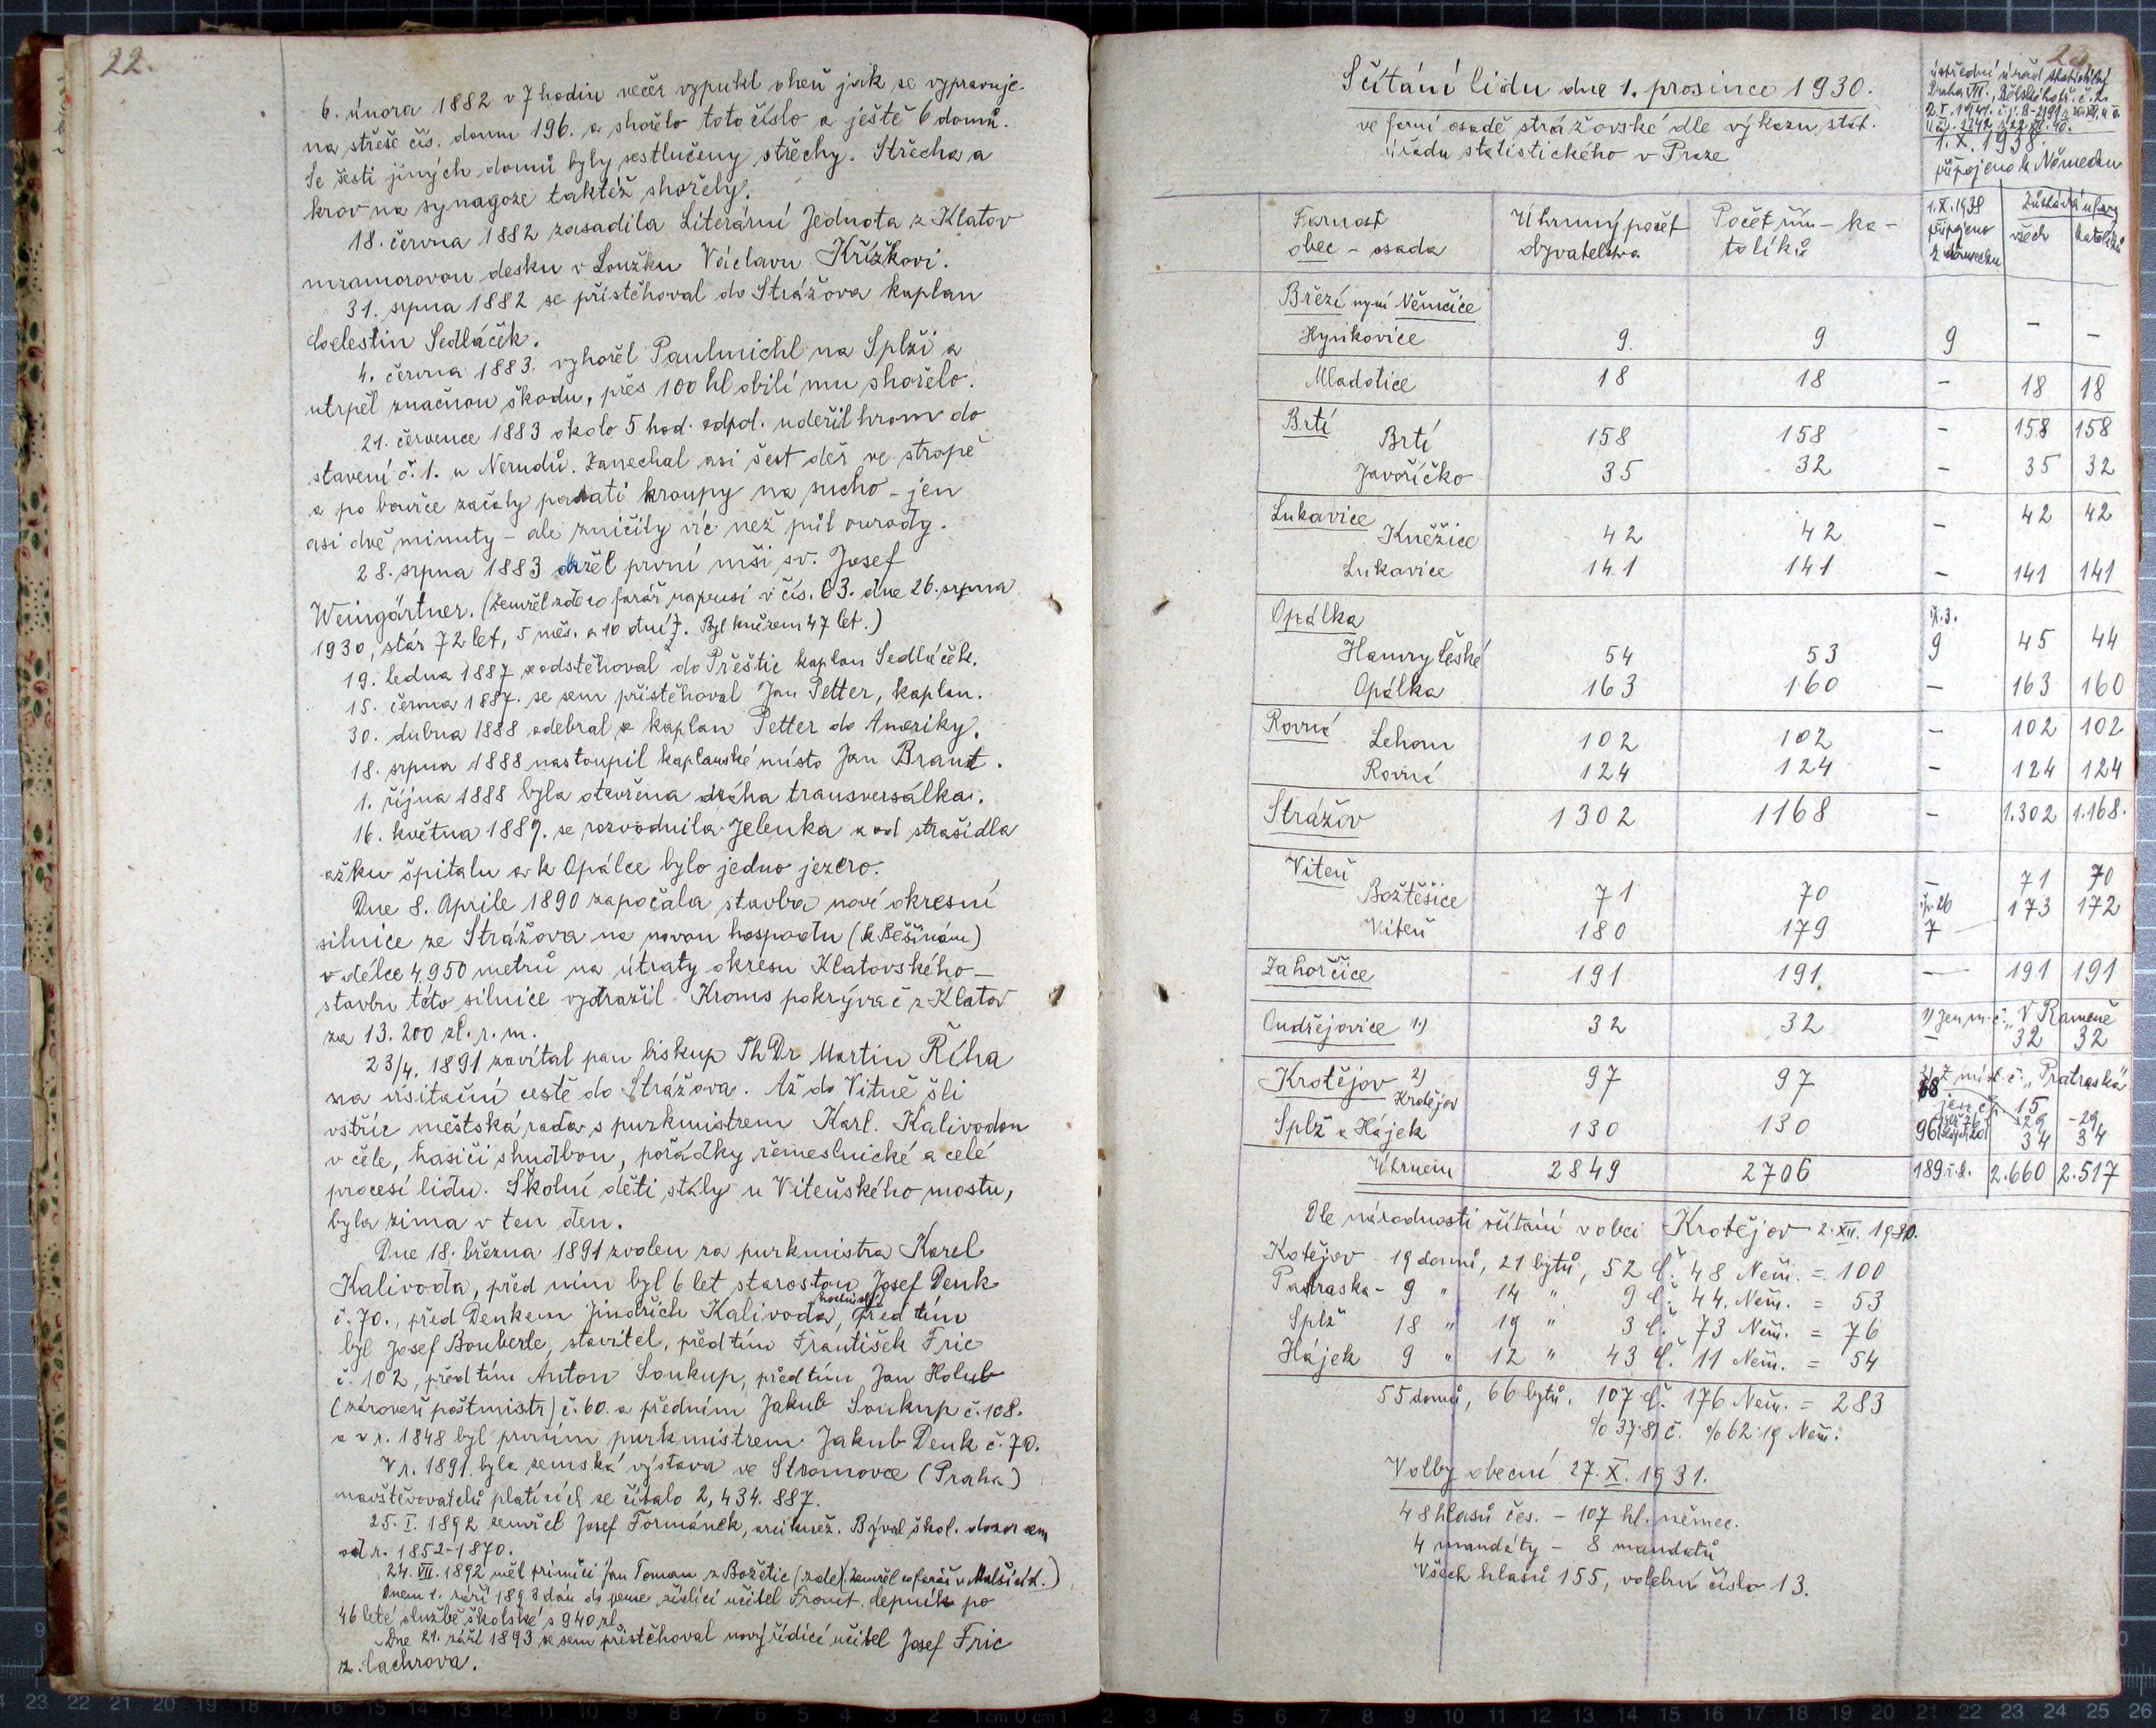 22.
6. února 1882 v 7 hodin večer vypukl oheň jak se vypravuje
na střeše čís. domu 196. a shořelo toto číslo a ještě 6 domů.
Se šesti jiných domů byly sestlučeny střechy. Střecha a
krov na synagoze taktéž shořely.
18. června 1882 zasadila Literární Jednota z Klatov
mramorovou desku v Loužku Václavu Křížkovi.
31. srpna 1882 se přistěhoval do Strážova kaplan
Coelestin Sedláček.
4. června 1883. vyhořel Paulmichl na Splži a
utrpěl značnou škodu, přes 100 hl obilí mu shořelo.
21. července 1883 okolo 5 hod. odpol. udeřil hrom do
stavení č. 1. u Nerudů. Zanechal asi šest děr ve stropě
a po bouřce začaly padati kroupy na sucho - jen
asi dvě minuty - ale zničily víc než půl ourody.
28. srpna 1883 držel první mši sv. Josef
Weingärtner. (Zemřel zde co farář na pensi v čís. 63. dne 26. srpna
1930, stár 72 let, 5 měs. a 10 dní). Byl knězem 47 let.)
19. ledna 1887 se odstěhoval do Přeštic kaplan Sedláček.
15. června 1887. se sem přistěhoval Jan Petter, kaplan.
30. dubna 1888 odebral se kaplan Petter do Ameriky.
18. srpna 1888 nastoupil kaplanské místo Jan Brant.
1. října 1888 byla otevřena dráha transversálka.
16. května 1889. se rozvodnila Jelenka a od strašidla
ažku špitalu a k Opálce bylo jedno jezero.
Dne 8. Aprile 1890 započala stavba nové okresní
silnice ze Strážova na novou hospodu (k Běšinám)
v délce 4,950 metrů na útraty okresu Klatovského -
stavbu této silnice vydražil Kroms pokrývač z Klatov
za 13.200 zl. r. m.
23/4. 1891 zavítal pan biskup ThDr Martin Říha
na visitační cestě do Strážova. Až do Vitně šli
vstříc městská rada s purkmistrem Karl. Kalivodou
v čele, hasiči s hudbou, pořádky řemeslnické a celé
procesí lidu. Školní děti stály u Viteňského mostu,
byla zima v ten den.
Dne 18. března 1891 zvolen za purkmistra Karel
Kalivoda, před ním byl 6 let starostou Josef Denk
č. 70., před Denkem Jindřich Kalivoda, před tím
byl Josef Bouberle, stavitel, před tím František Fric
č. 102, před tím Anton Soukup, před tím Jan Holub
(zároveň poštmistr) č. 60. a předním Jakub Soukup č. 108.
a v r. 1848 byl prvním purkmistrem Jakub Denk č. 70.
V r. 1891. byla zemská výstava ve Stromovce (Praha)
navštěvovatelů platících se čítalo 2,434.887.
25. I. 1892 zemřel Josef Formánek, arcikněž. Býval škol. dozorcem
od r. 1852-1870.
24. VII. 1892 měl primici Jan Toman z Božětic (zde) (Zemřel co farář v Malšicích.)
Dnem 1. září 1893 dán do pense řídící učitel Frant. po
46 leté službě školské s 940 zl.
Dne 21. září 1893 se sem přistěhoval nový řídící učitel Josef Fric
z Čachrova.
23.
Sčítání lidu dne 1. prosince 1930.
ve farní osadě strážovské dle výkazu stát.
úřadu statistického v Praze
ústřední úřad statistický
Praha VII., Bělského tř. č. 2.
1. X. 1938.
připojeno k Německu
Farnost obec - osada | Úhrnný počet obyvatelstva | Počet řím-katolíků | 1.X.1938 připojeno k Německu | Zůstává u fary všech | katolíků
Březí nyní Němčice
Hynkovice 9. 9 9 - -
Mladotice 18 18 - 18 18
Brtí
Brtí 158 158 - 158 158
Javoříčko 35 32 - 35 32
Lukavice
Kněžice 42 42 - 42 42
Lukavice 141 141 - 141 141
Opálka č. 3.
Hamry české 54 53 9 45 44
Opálka 163 160 - 163 160
Rovná
Lehom 102 102 - 102 102
Rovná 124 124 - 124 124
Strážov 1302 1168 - 1.302 1.168.
Viteň
Božtěšice 71 70 - 71 70
Viteň 180 179 čp 26 7 173 172
Zahorčice 191 191. - 191 191
Ondřejovice 1) 32 32 1) Jen m. č. „V Rameně" - 32 32
Krotějov 2) Krotějov 97 97 2) Z míst. č. „Pratraská" 68 jen čp. 15 29 - 29
Splž a Hájek 130 130 96 34 34
Úhrnem 2849 2706 189 ř.k. 2.660 2.517
Dle národnosti sčítání v obci Krotějov 2. XII. 1930.
Kotějov - 19 domů, 21 bytů, 52 Č. 48 Něm. = 100
Patraska - 9 " 14 " 9 Č. 44. Něm. = 53
Splž 18 " 19 " 3 Č. 73 Něm. = 76
Hájek 9 " 12 " 43 Č. 11 Něm. = 54
55 domů, 66 bytů. 107 Č. 176 Něm. = 283
% 37.81 č. % 62.19 Něm.
Volby obecní 27. X. 1931.
48 hlasů čes. - 107 hl. němec.
4 mandáty - 8 mandátů
Všech hlasů 155, volební číslo 13.